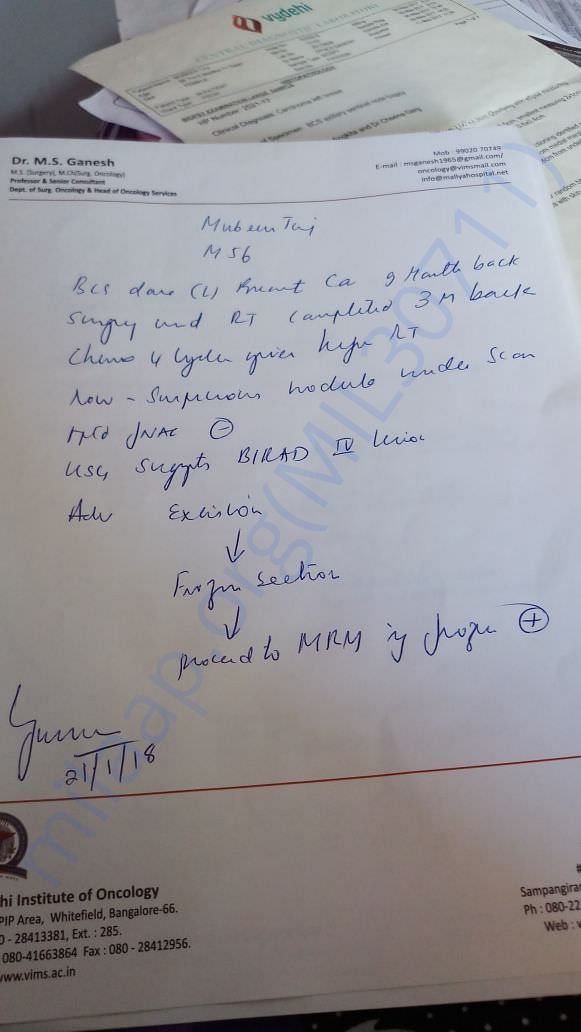 vydehi
CENTRAL DIAGNOSTIC LABORATORY
HISTOPATHOLOGY
HP Number 2021-17
Clinical Diagnosis: Carcinoma left breast
Dr. M.S. Ganesh
M.S. (Surgery), M.Ch(Surg. Oncology)
Professor & Senior Consultant
Dept. of Surg. Oncology & Head of Oncology Services
Mob : 99020 70749
E-mail : msganesh1965@gmail.com/
oncology@vimsmail.com
info@mallyahospital.net
Mubeen Taj
M 56
BCS done (L) Breast Ca 9 Month back
Surgery and RT Completed 3 M back
Chemo 4 Cycles given before RT
Now - Suspicious nodule under Scan
FNAC ⊖
USG Suggests BIRAD IV lesion
Adv Excision
↓
Frozen Section
↓
proceed to MRM if frozen ⊕
21/1/18
milaap.org(MIL307111)
hi Institute of Oncology
PIP Area, Whitefield, Bangalore-66.
0 - 28413381, Ext. : 285.
080-41663864 Fax : 080 - 28412956.
www.vims.ac.in
Sampangiran
Ph : 080-22
Web : w